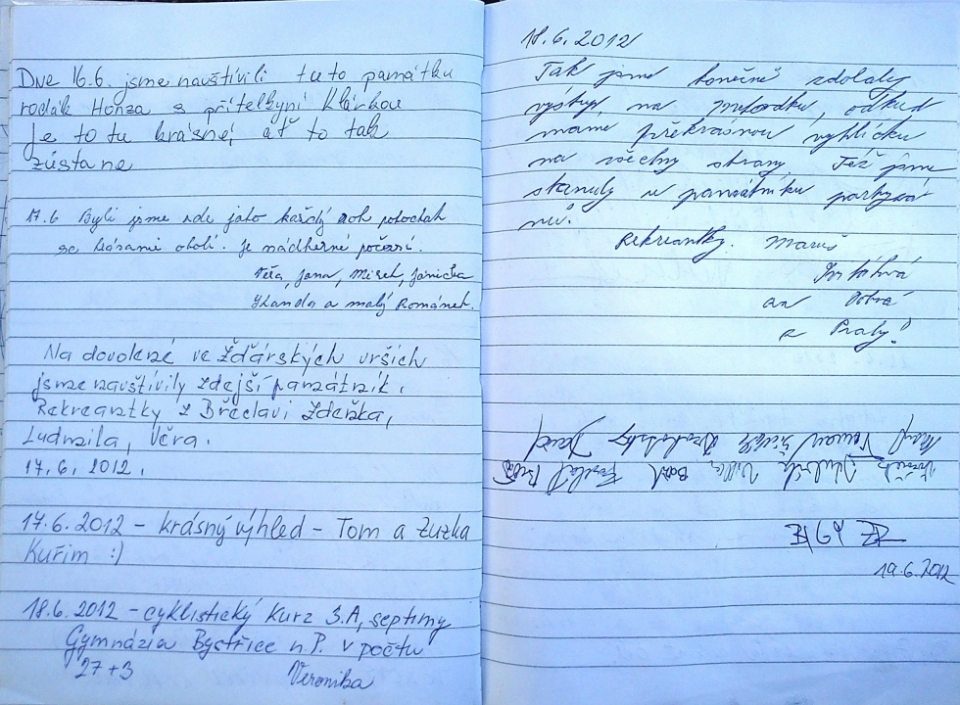 Dne 16.6. jsme navštívili tuto památku
rodák Honza s přítelkyní Klárkou
Je to tu krásné, ať to tak
zůstane
17.6 Byli jsme zde jako každý rok pokochat
se krásami okolí. Je nádherné počasí.
Věra, Jana, Mirek, Janička
Standa a malý Románek.
Na dovolené ve Žďárských vrších
jsme navštívily zdejší památník.
Rekreantky z Břeclavi Zdeňka,
Ludmila, Věra.
17.6. 2012.
17.6.2012 - krásný výhled - Tom a Zuzka
Kuřim :)
18.6.2012 - cyklistický kurz 3.A, septimy
Gymnázia Bystřice n.P. v počtu
27+3 Veronika
18.6.2012
Tak jsme konečně zdolaly
výstup na odkud
máme překrásnou vyhlídku
na všechny strany. Též jsme
stanuly u památníku partyzá
nů.
Rekreantky. Maruš
z Prahy!
19.6.2012